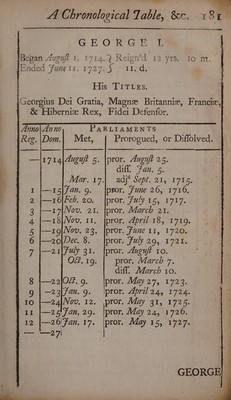 A Chronological Table, &c. 181
GEORGE I.
Began August 1. 1714. } Reign'd 12 yrs. 10 m.
Ended June 11. 1727. } 11. d.
His TITLES.
Georgius Dei Gratia, Magnæ Britanniæ, Franciæ,
& Hiberniæ Rex, Fidei Defensor.
Anno Anno PARLIAMENTS
Reg. Dom. Met, Prorogued, or Dissolved.
— 1714 August 5. pror. August 25.
diss. Jan. 5.
Mar. 17. adj. Sept. 21, 1715.
1 —15 Jan. 9. pror. June 26, 1716.
2 —16 Feb. 20. pror. July 15, 1717.
3 —17 Nov. 21. pror. March 21.
4 —18 Nov. 11. pror. April 18, 1719.
5 —19 Nov. 23. pror. June 11, 1720.
6 —20 Dec. 8. pror. July 29, 1721.
7 —21 July 31. pror. August 10.
Oct. 19. pror. March 7.
diss. March 10.
8 —22 Oct. 9. pror. May 27, 1723.
9 —23 Jan. 9. pror. April 24, 1724.
10 —24 Nov. 12. pror. May 31, 1725.
11 —25 Jan. 29. pror. May 24, 1726.
12 —26 Jan. 17. pror. May 15, 1727.
— —27
GEORGE